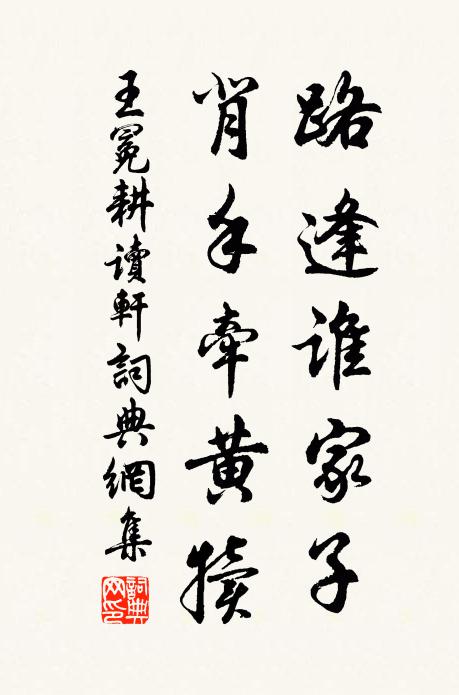 路逢誰家子
背手牽黄犢
王冕耕讀軒詞典網集
詞典网印